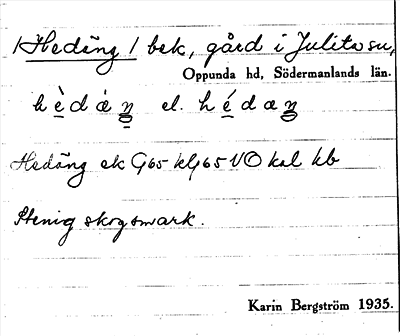 /Hedäng/ bek, gård i Julita sn,
Oppunda hd, Södermanlands län.
hèdàŋ el. hédaŋ
Hedäng ek G65 kG65 VO kal kb
Stenig skogsmark.
Karin Bergström 1935.